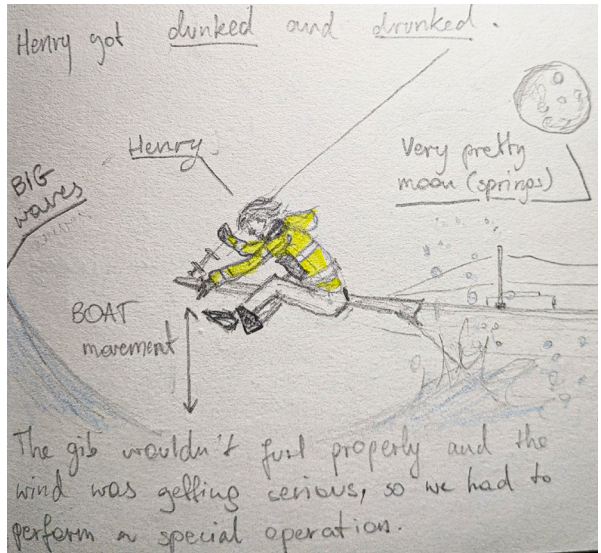 Henry got dunked and drunked.
Henry
Very pretty
moon (springs)
BIG
waves
BOAT
movement
The gib wouldn't furl properly and the
wind was getting serious, so we had to
perform a special operation.